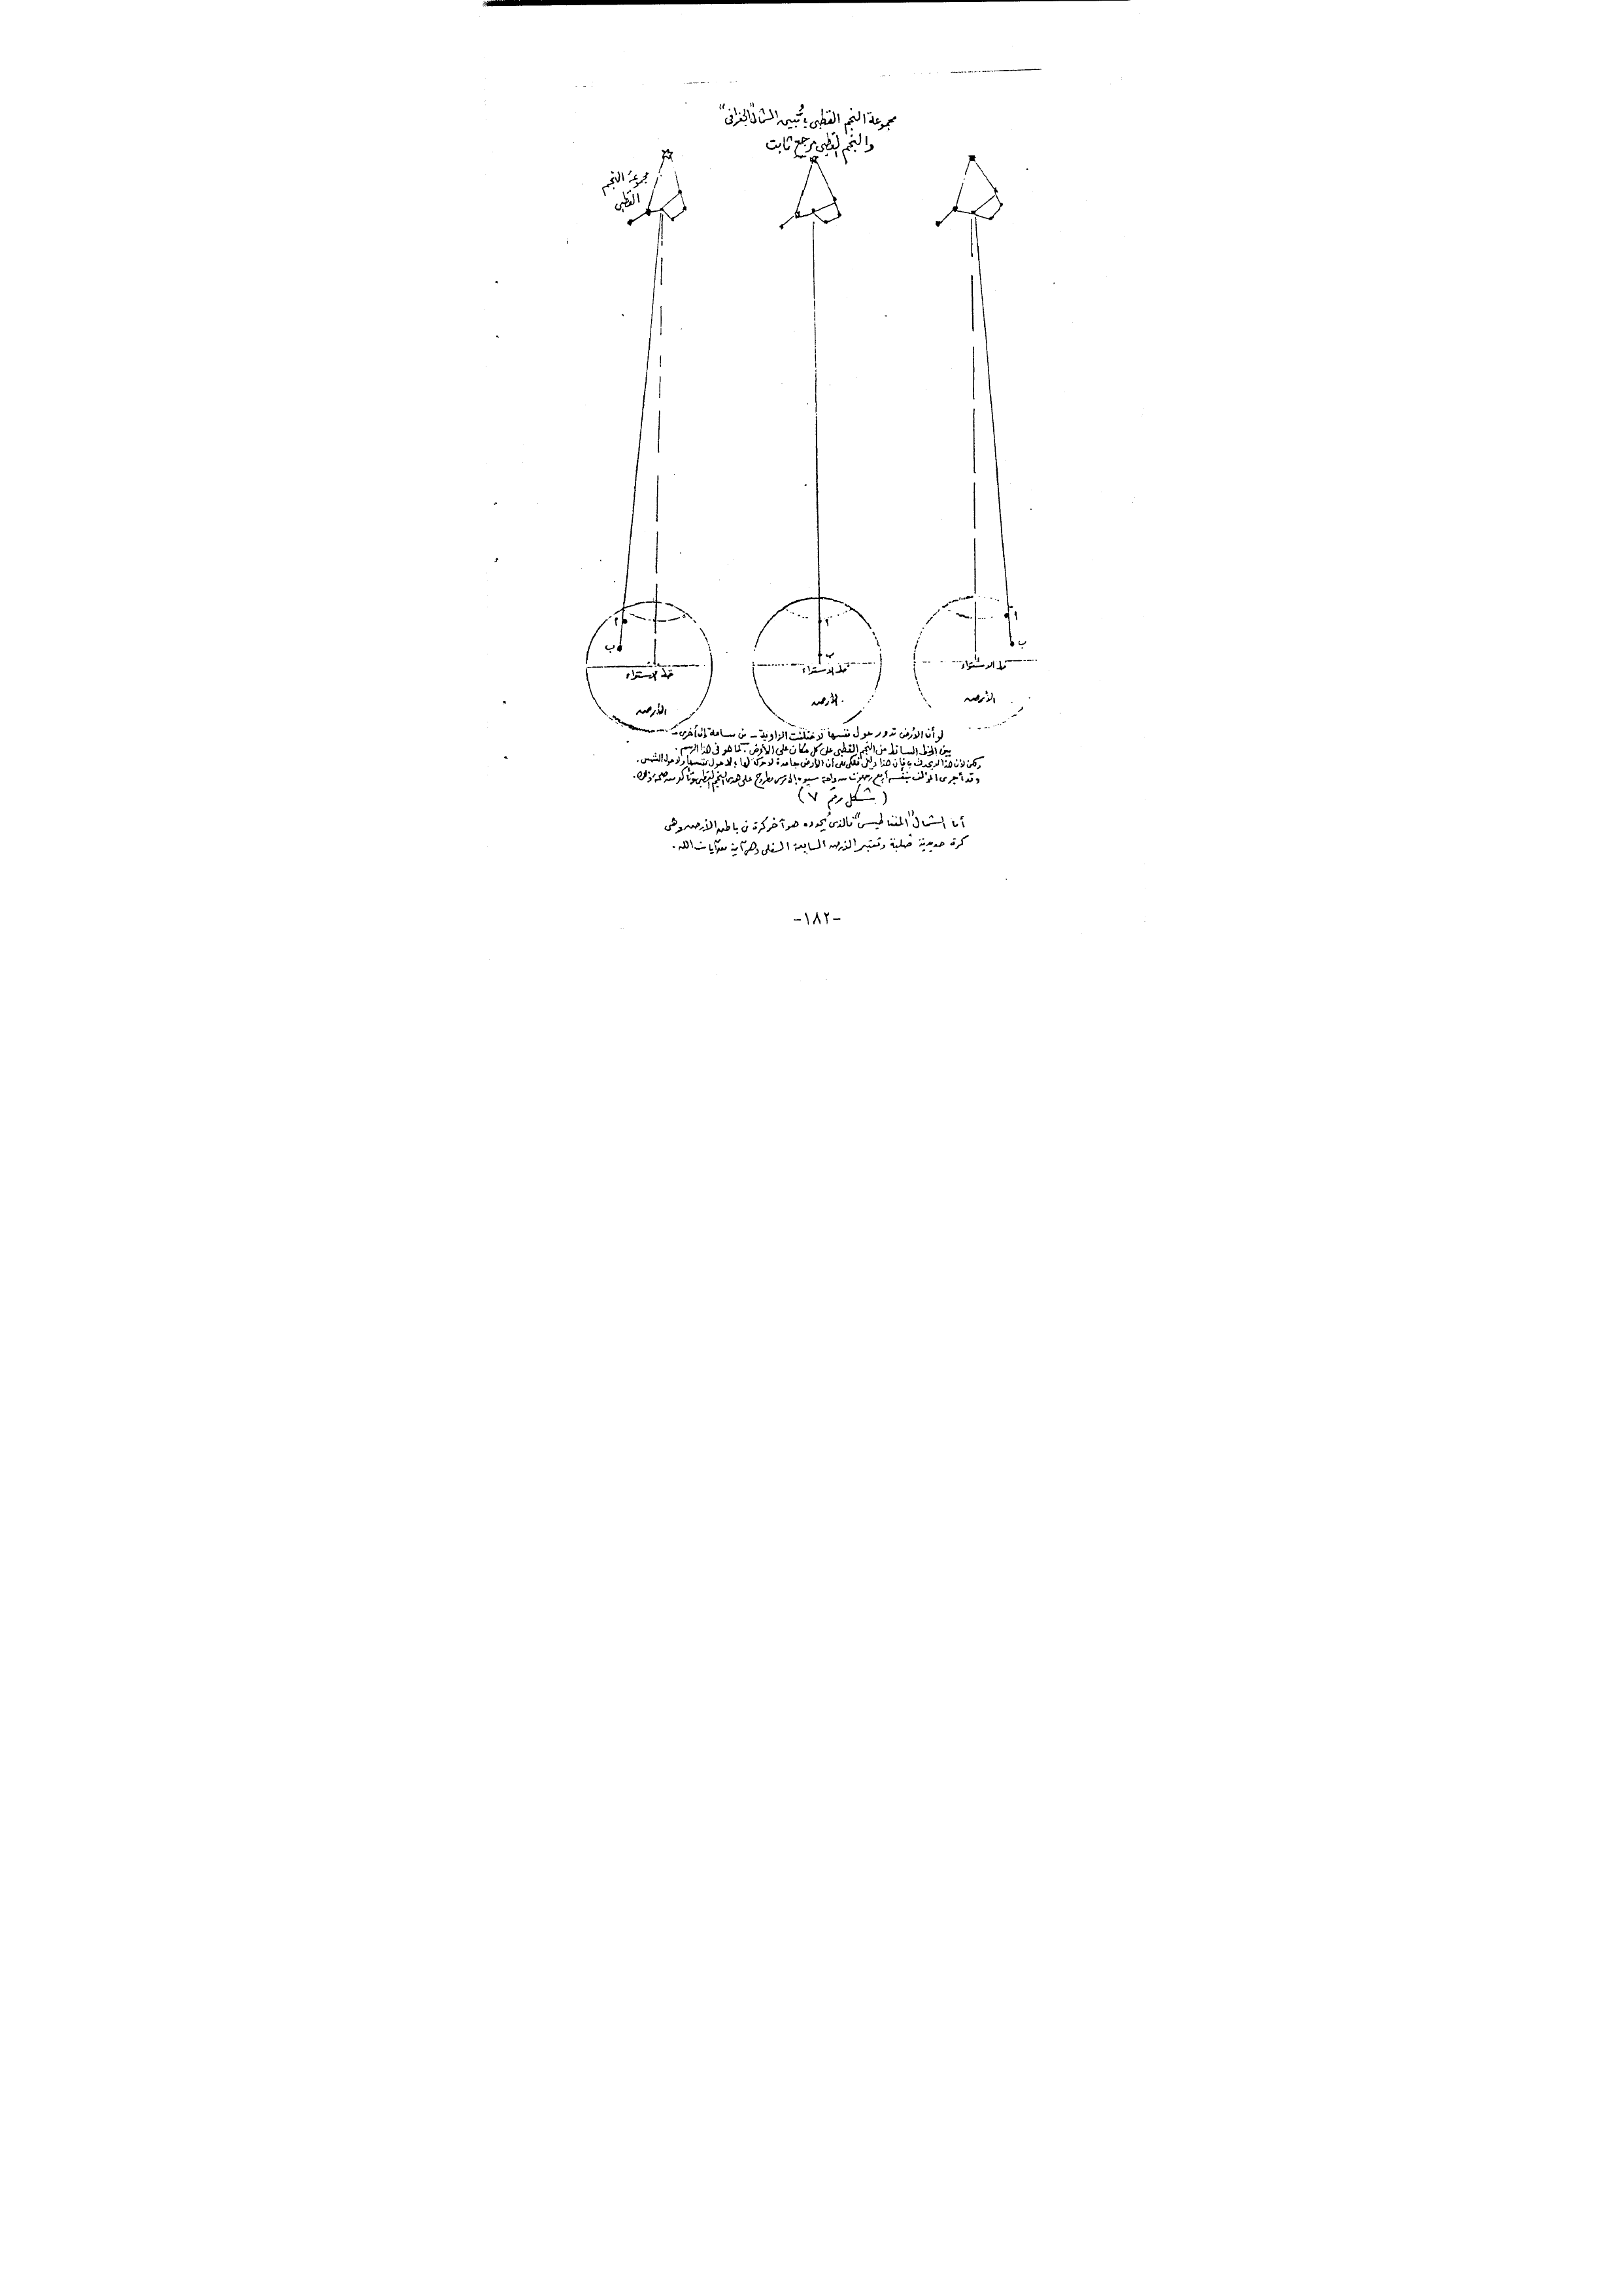 مجموعة النجم القطبى؛ تُبين الشمال "الجغرافى"
والنجم القطبى مرجع ثابت
مجموعة النجم
القطبى
أ
ب
خط الاستواء
الأرض
أ
ب
خط الاستواء
الأرض
أ
ب
خط الاستواء
الأرض
لو أن الأرض تدور حول نفسها لاختلفت الزاوية - من ساعة إلى أخرى -
بين الخط الساقط من النجم القطبى على كل مكان على الأرض. كما هو فى هذا الرسم.
ولكن لأن هذا لا يحدث؛ فإن هذا دليل فلكى على أن الأرض جامدة لا حركة لها؛ لا حول نفسها ولا حول الشمس.
وقد أجرى المؤلف بنفسه أربع رحلات من واحة سيوه إلى مرسى مطروح على هدى النجم القطبى وتأكد من صحة ذلك.
(شكل رقم ٧)
أما الشمال "المغناطيسى" فالذى يُحدده هو آخر كرة فى باطن الأرض وهى
كرة حديدية صلبة وتعتبر الأرض السابعة السفلى وهى آية من آيات الله.
-١٨٢-